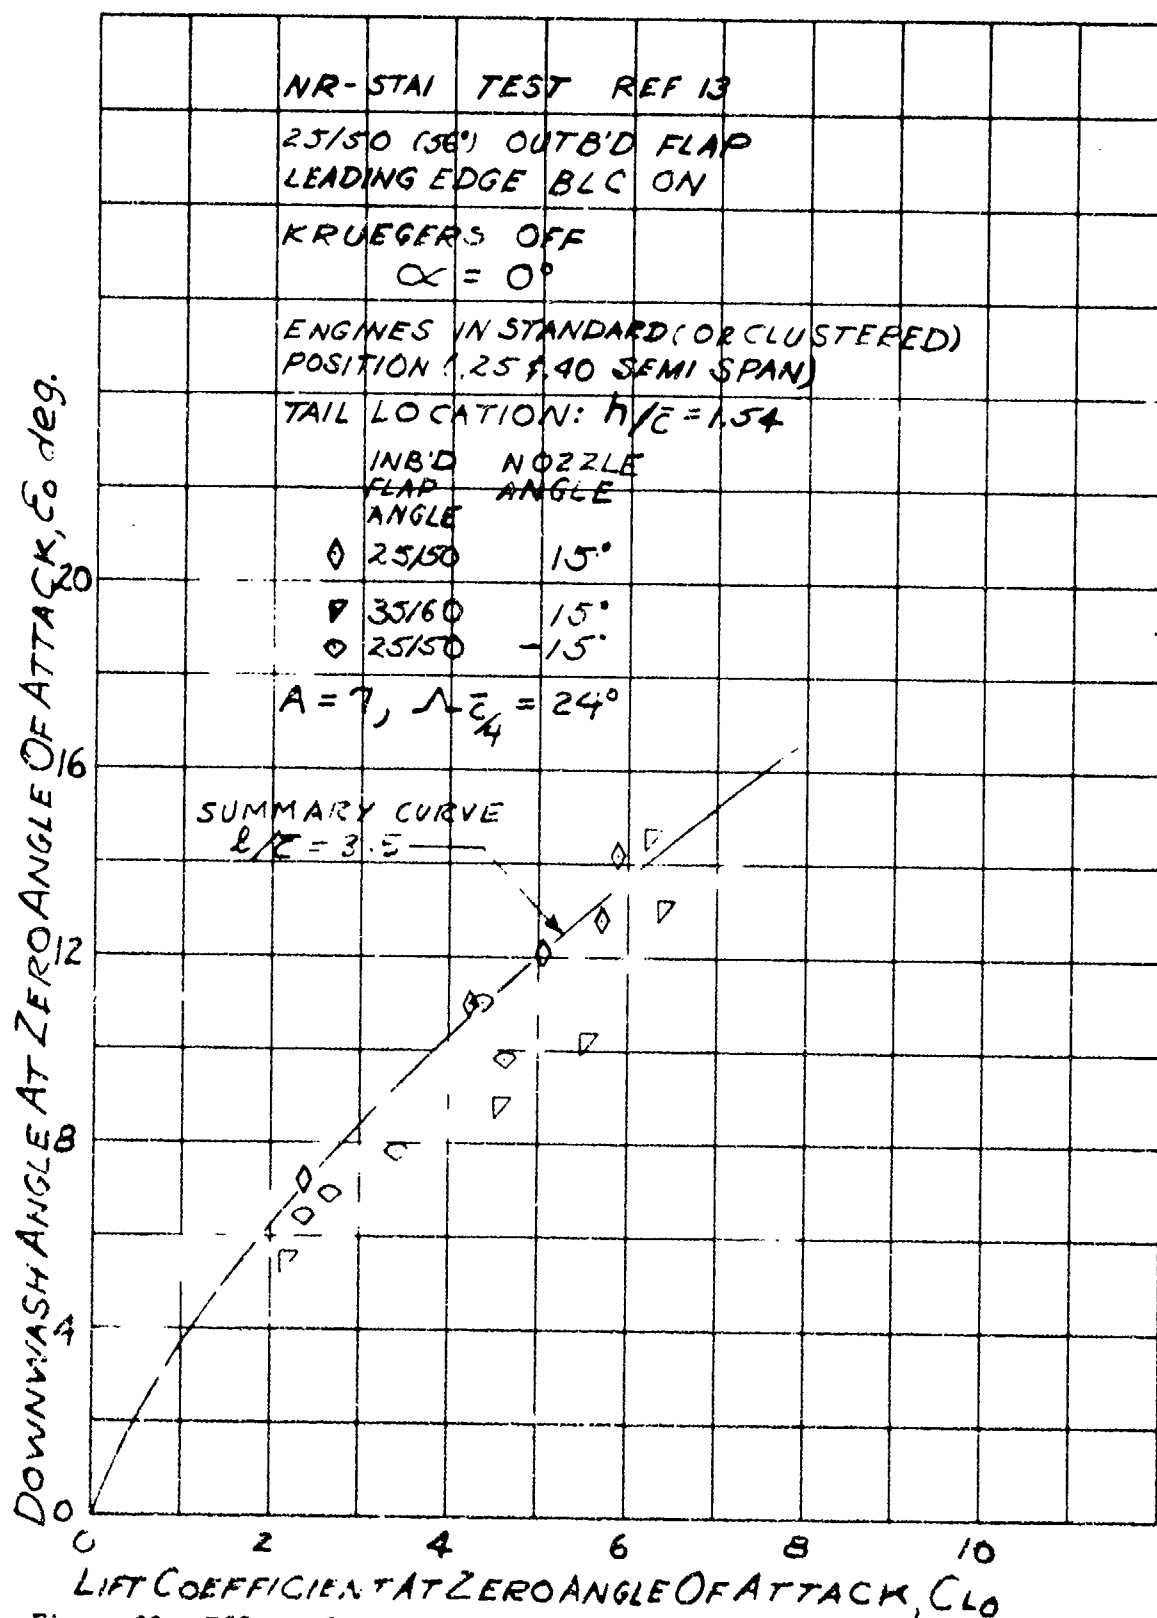 NR-STAI TEST REF 13
25/50 (56°) OUTB'D FLAP
LEADING EDGE BLC ON
KRUEGERS OFF
α = 0°
ENGINES IN STANDARD (OR CLUSTERED)
POSITION (.25 & .40 SEMI SPAN)
TAIL LOCATION: h/c̄ = 1.54
INB'D NOZZLE
FLAP ANGLE
ANGLE
25/50 15°
35/60 15°
25/50 -15°
A = 7, Λ c̄/4 = 24°
SUMMARY CURVE
l/c̄ = 3.5
DOWNWASH ANGLE AT ZERO ANGLE OF ATTACK, ε0 deg.
20
16
12
8
4
0
0 2 4 6 8 10
LIFT COEFFICIENT AT ZERO ANGLE OF ATTACK, CL0